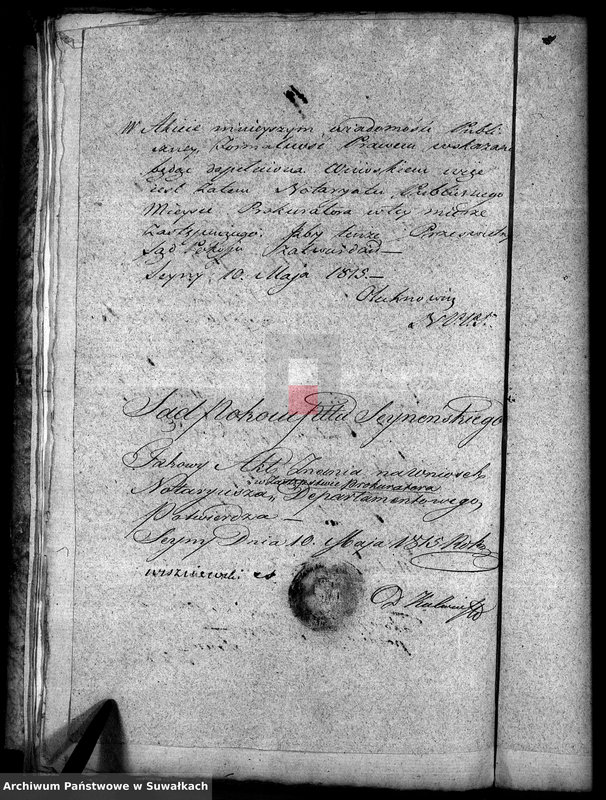 W Akcie ninieyszym wiadomości Publi-
czney, Formalność Prawem wskazana
będąc dopełniona Wnioskiem więc
iest zatem Notaryatu Publicznego
Mieysce Prokuratora w tey mierze
zastępuiącego. Aby tenże Prześwietny
Sąd Pokoju zatwierdził —
Seyny 10. Maja 1815 —
Sąd Pokoiu Pttu Seyneńskiego
Takowy Akt Znania na wniosek
w zastępstwie Prokuratora
Notaryusza, Departamentowego,
Potwierdza —
Seyny Dnia 10. Maja 1815 Roku
wiszniewski
Archiwum Państwowe w Suwałkach